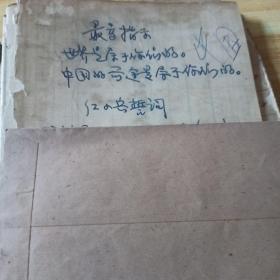 最高指示
世界是属于你们的。
中国的前途是属于你们的。
红小兵